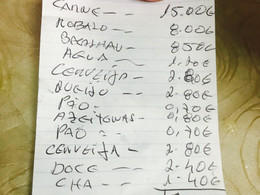 CARNE -- 15.00€
ROBALO -- 8.00€
BACALHAU - 8.50€
AGUA -- 1.20€
CERVEIJA - 2.80€
QUEIJO -- 2.80€
PÃO -- 0,70€
AZEITONAS - 0.80€
PÃO -- 0,70€
CERVEIJA - 2.80€
DOCE -- 2.40€
CHA -- 1.40€